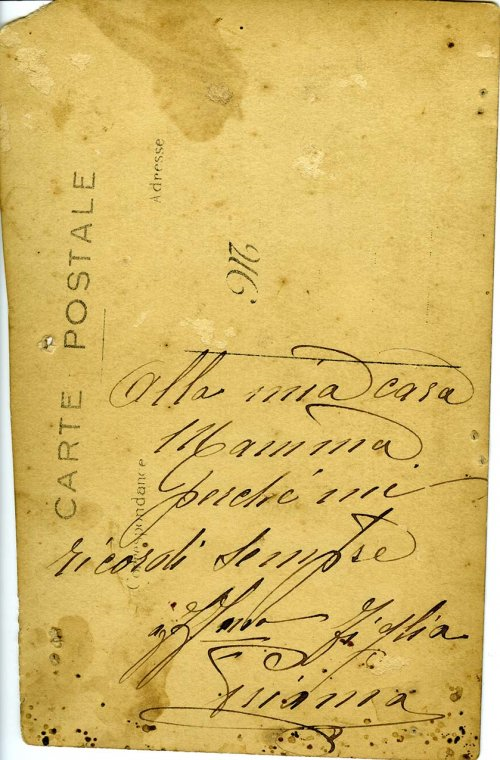 CARTE POSTALE
Correspondance
Adresse
M.
Alla mia cara
Mamma
perché mi
ricordi sempre
Figlia